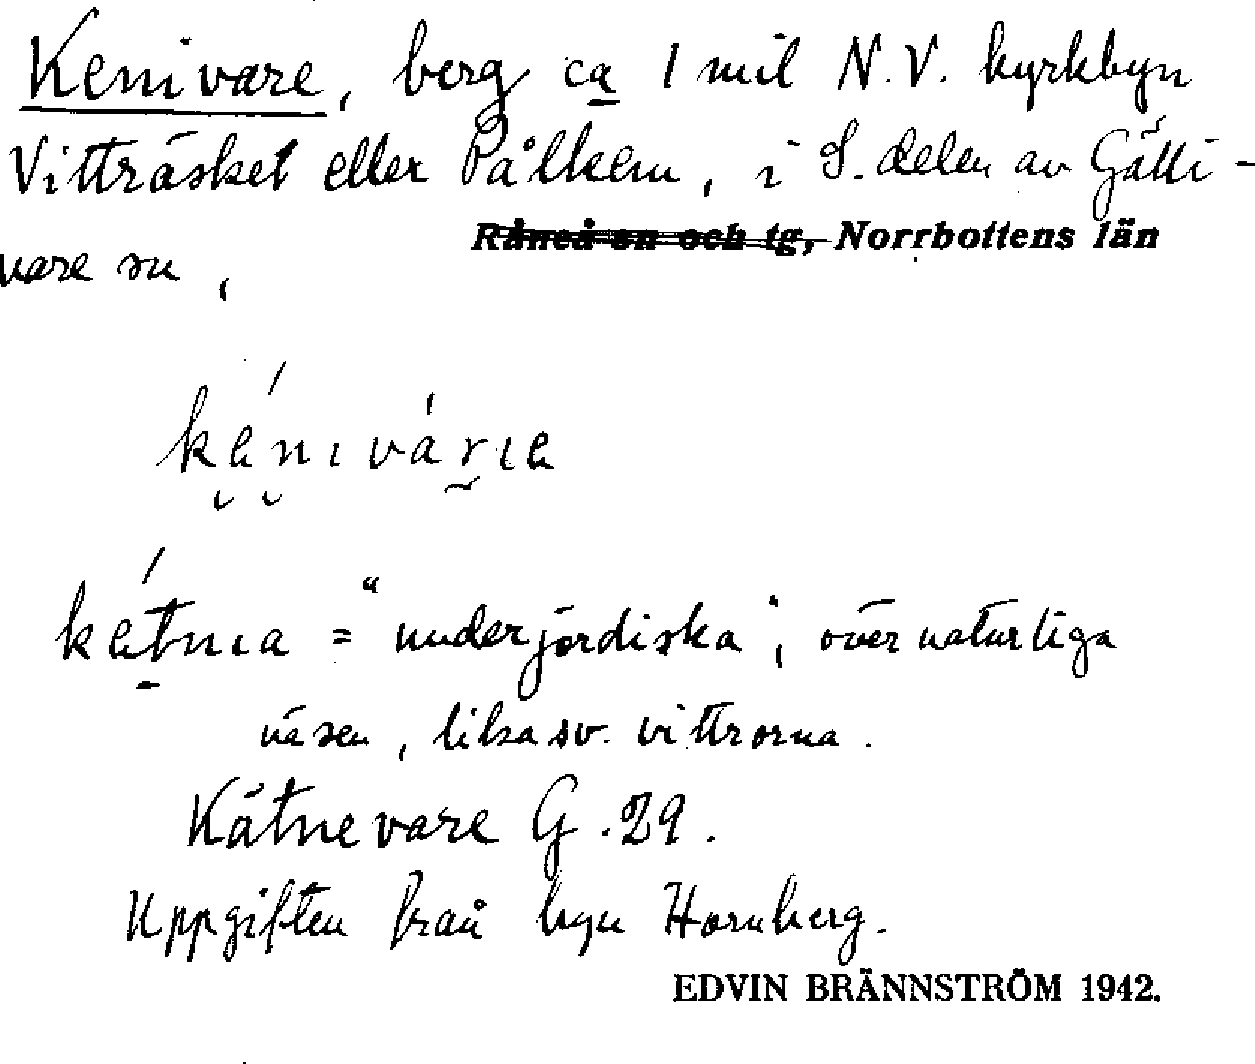 Kenivare, berg ca 1 mil N.V. kyrkbyn
Vitträsket eller Pålkem, i S. delen av Gälli-
Råneå sn och tg, Norrbottens län
vare sn,
kénivárıe
kétnıa = "underjordiska", övernaturliga
väsen, liksom vittrorna.
Kätnevare G. 29.
Uppgiften från byn Hornberg.
EDVIN BRÄNNSTRÖM 1942.